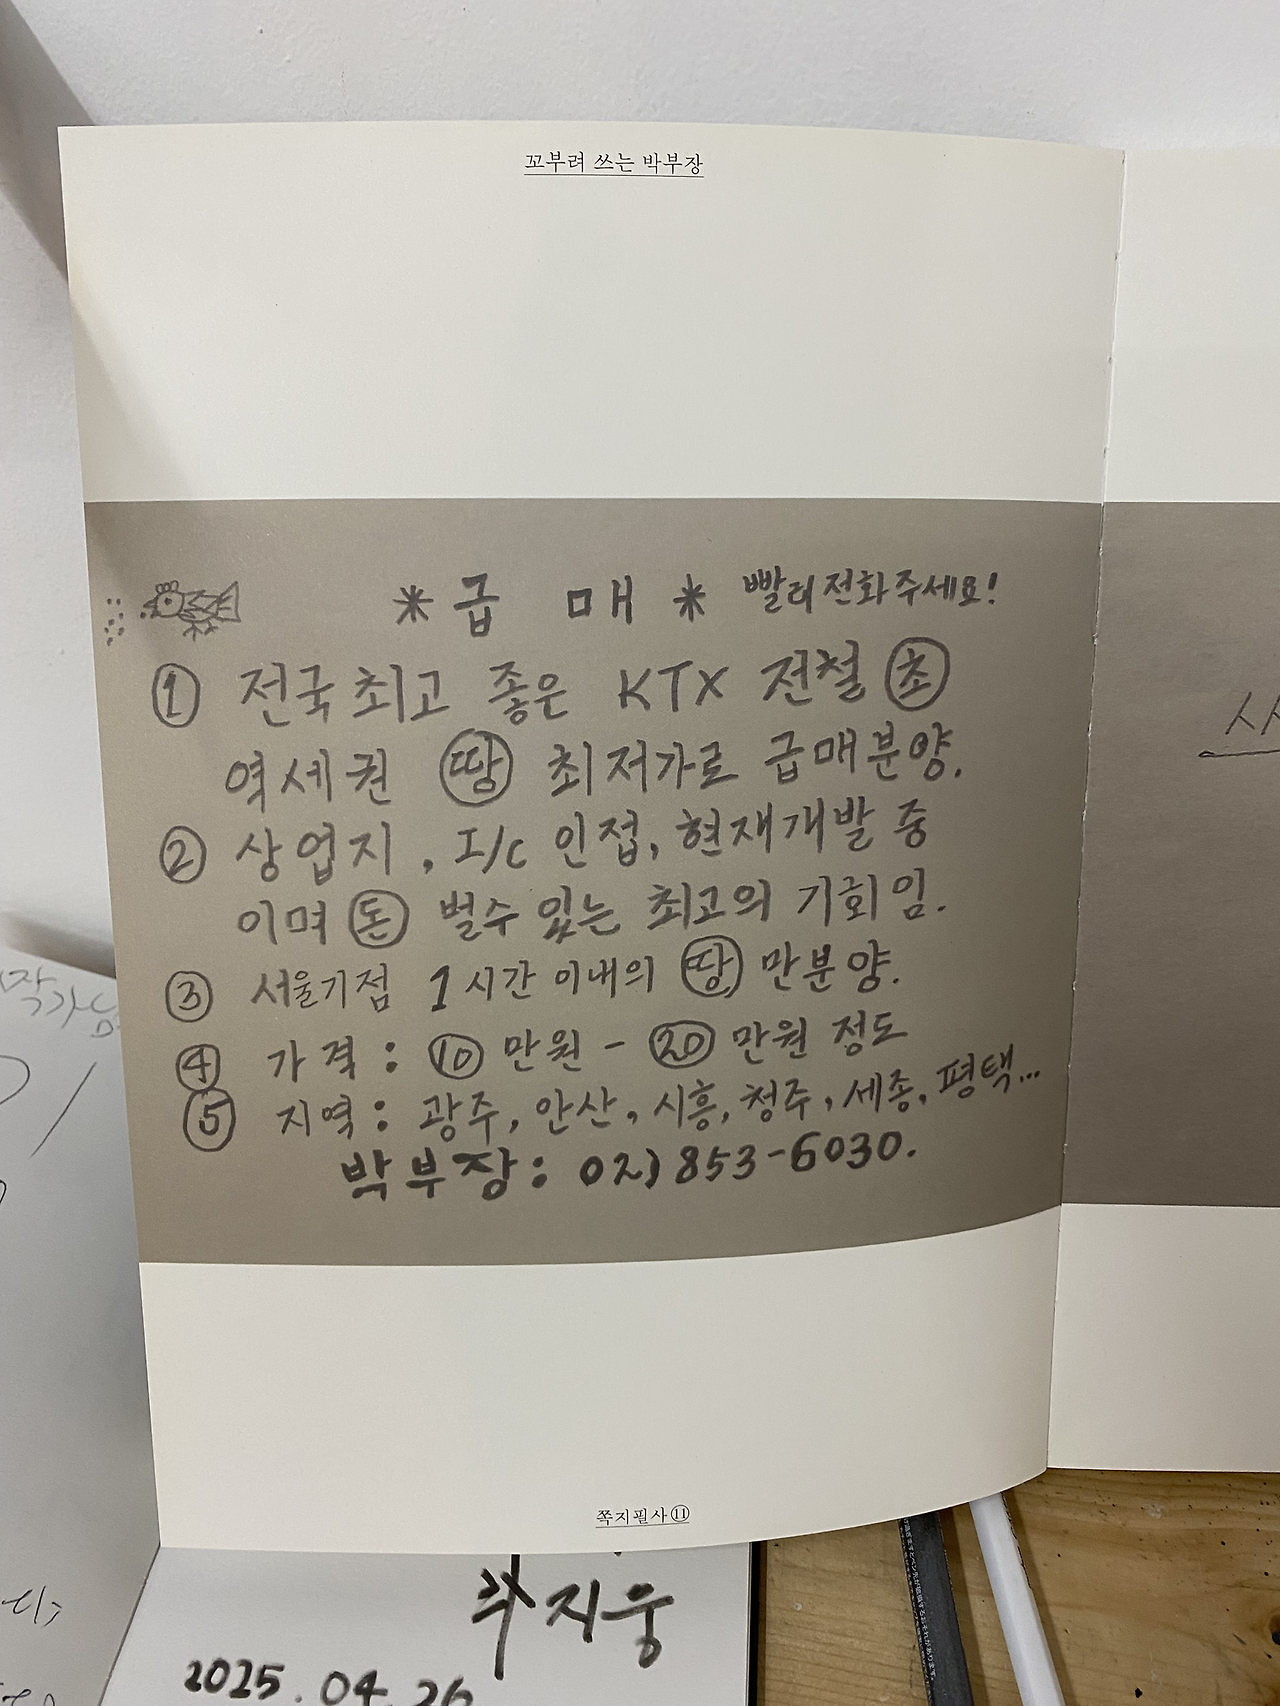 꼬부려 쓰는 박부장
* 급 매 * 빨리전화주세요!
① 전국최고 좋은 KTX 전철 초
역세권 땅 최저가로 급매분양.
② 상업지, I/c 인접, 현재개발 중
이며 돈 벌수 있는 최고의 기회임.
③ 서울기점 1시간 이내의 땅 만분양.
④ 가격: 10 만원 - 20 만원 정도
⑤ 지역: 광주, 안산, 시흥, 청주, 세종, 평택...
박부장: 02)853-6030.
쪽지필사⑪
지웅
2025.04.26